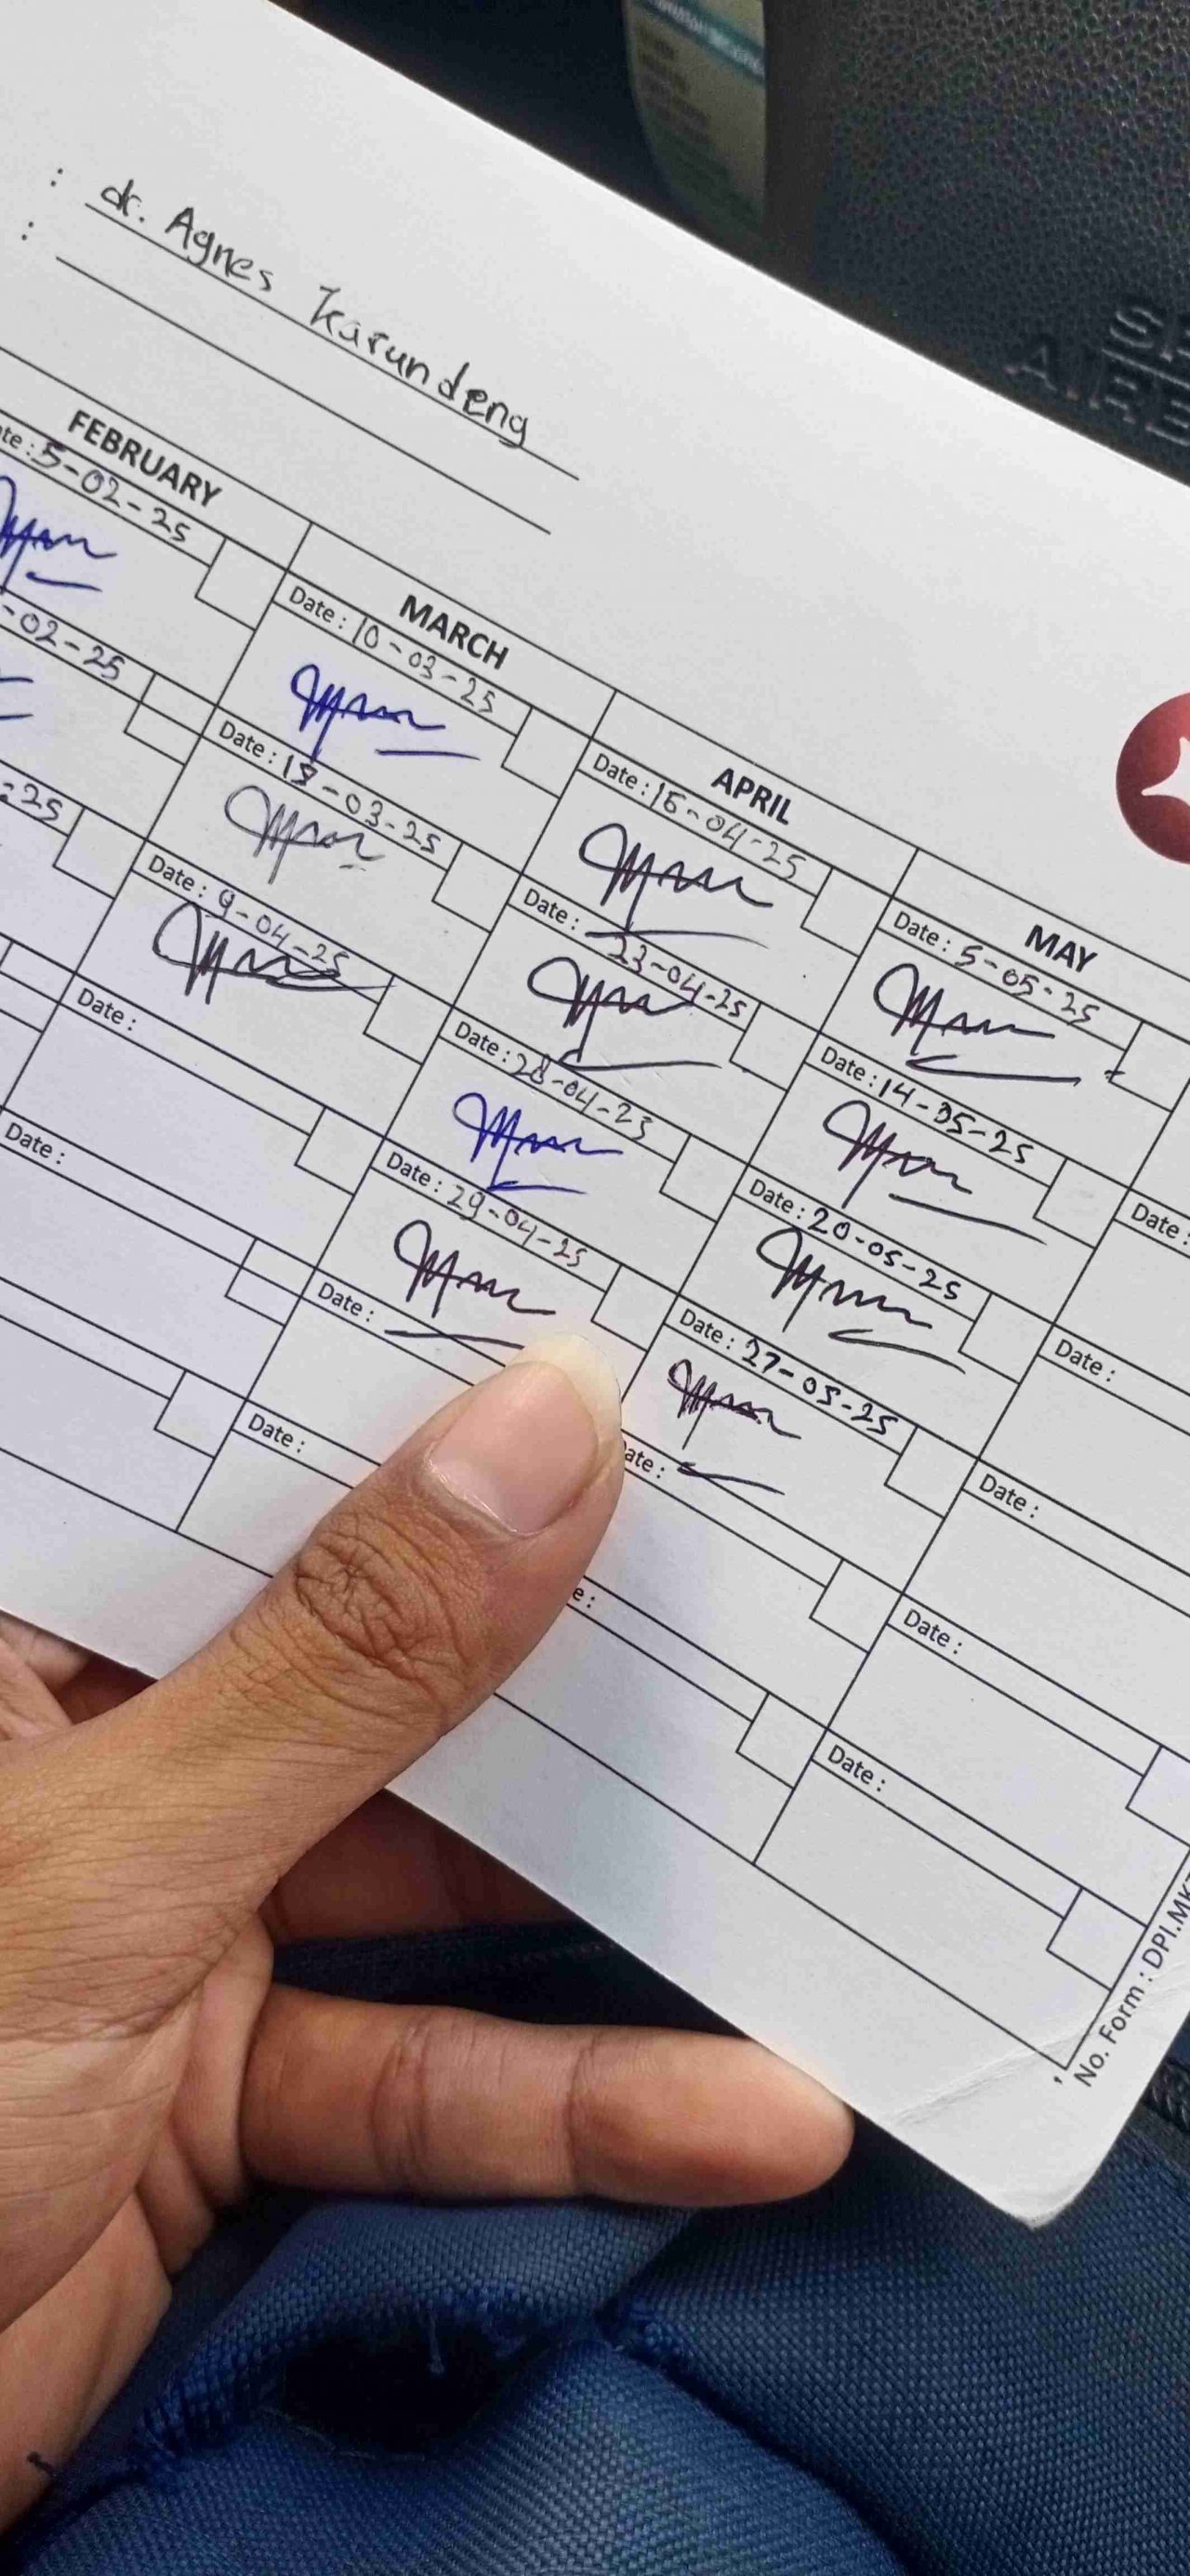 : dr. Agnes Karundeng
:
FEBRUARY
te : 5-02-25
-02-25
-25
MARCH
Date : 10-03-25
Date : 18-03-25
Date : 9-04-25
Date :
Date :
APRIL
Date : 16-04-25
Date : 23-04-25
Date : 28-04-23
Date : 29-04-25
Date :
Date :
MAY
Date : 5-05-25
Date : 14-05-25
Date : 20-05-25
Date : 27-05-25
ate :
e :
Date :
Date :
Date :
Date :
Date :
No. Form : DPI.MK
AIRB